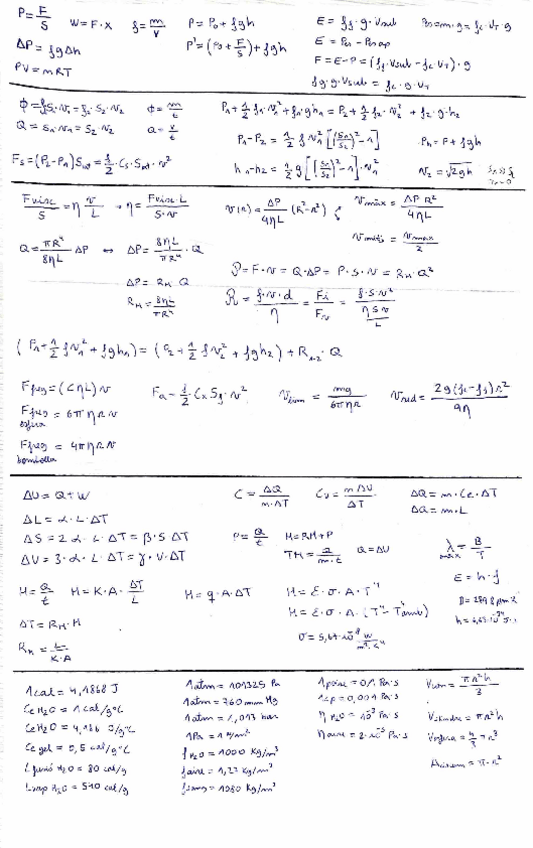 P = F/S   W = F·x   ρ = m/V   P = P₀ + ρgh   E = ρf·g·Vsub   Pes = m·g = ρc·V_T·g
ΔP = ρgΔh   P' = (P₀ + F/S) + ρgh   E = Pes - Pesap
PV = mRT   F = E - P = (ρf·Vsub - ρc·V_T)·g
ρf·g·Vsub = ρc·g·V_T
Φ = ρ₁S₁·v₁ = ρ₂·S₂·v₂   Φ = m/t   P₁ + 1/2 ρ₁·v₁² + ρ₁·g·h₁ = P₂ + 1/2 ρ₂·v₂² + ρ₂·g·h₂
Q = S₁·v₁ = S₂·v₂   Q = V/t   P₁ - P₂ = 1/2 ρ v₁² [(S₁/S₂)² - 1]   Ph = P + ρgh
Fs = (P₂ - P₁)S = ρ/2·Cs·S·v²   h₁ - h₂ = 1/2 g [(S₁/S₂)² - 1]·v₁²   v₂ = √2gh
Fvisc/S = η v/L → η = Fvisc·L/S·v   v(r) = ΔP/4ηL (R² - r²)   vmàx = ΔP·R²/4ηL
vmitj = vmax/2
Q = πR⁴/8ηL ΔP ↔ ΔP = 8ηL/πR⁴ · Q   P = F·v = Q·ΔP = P·S·v = R_H·Q²
ΔP = R_H Q
R_H = 8ηL/πR⁴   R = ρ·v·d/η = Fi/Fv = ρ·S·v²/(η S v/L)
(P₁ + 1/2 ρv₁² + ρgh₁) = (P₂ + 1/2 ρv₂² + ρgh₂) + R₁₋₂·Q
Ffreg = (CηL)v   Fa = ρ/2·Cx Sf·v²   vlim = mg/6πηR   vsed = 2g(ρc - ρf)R²/9η
Ffreg = 6πηRv
esfera
Ffreg = 4πηRv
bombolla
ΔU = Q + W   C = ΔQ/m·ΔT   Cv = m ΔU/ΔT   ΔQ = m·Ce·ΔT
ΔL = α·L·ΔT   ΔQ = m·L
ΔS = 2α·L·ΔT = β·S ΔT   P = Q/t   M = RM + P
ΔV = 3·α·L·ΔT = γ·V·ΔT   TM = Q/m·t   Q = ΔU   λmàx = B/T
E = h·f
H = Q/t   H = K·A·ΔT/L   H = q·A·ΔT   H = ε·σ·A·T⁴
H = ε·σ·A·(T⁴ - T⁴amb)   B = 2898 μm K
ΔT = R_H·H   σ = 5,67·10⁻⁸ W/m²·K⁴
R_H = L/K·A
1 cal = 4,1868 J   1 atm = 101325 Pa   1 poise = 0,1 Pa·s   Vcon = πr²h/3
Ce H₂O = 1 cal/g°C   1 atm = 760 mm Hg   1 cp = 0,001 Pa·s
Ce H₂O = 4,186 J/g°C   1 atm = 1,013 bar   η H₂O = 10⁻³ Pa·s   Vcilindre = πr²h
Ce gel = 0,5 cal/g°C   1 Pa = 1 N/m²   η aire = 2·10⁻⁵ Pa·s   Vesfera = 4/3 πr³
L fusió H₂O = 80 cal/g   ρ H₂O = 1000 Kg/m³
L vap H₂O = 540 cal/g   ρ aire = 1,23 Kg/m³   Acircum = π·r²
ρ sang = 1080 Kg/m³